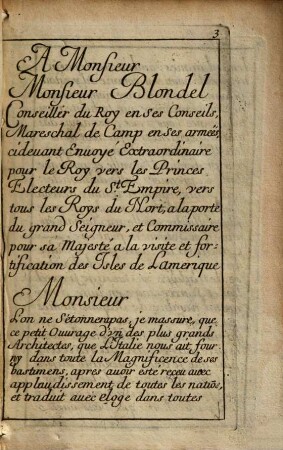 3
A Monsieur
Monsieur Blondel
Conseiller du Roy en ses Conseils,
Mareschal de Camp en ses armées,
cideuant Enuoyé Extraordinaire
pour le Roy vers les Princes
Electeurs du S.t Empire, vers
tous les Roys du Nort, a la porte
du grand Seigneur, et Commissaire
pour sa Majesté a la visite et for=
tification des Isles de Lamerique
Monsieur
L'on ne S'étonnerapas, je massure, que
ce petit Ouurage d'vn des plus grands
Architectes, que L'Italie nous ait four
ny dans toute la Magnificence de ses
bastimens, apres auoir esté reçeu auec
applaudissement de toutes les natiõs,
et traduit auec eloge dans toutes